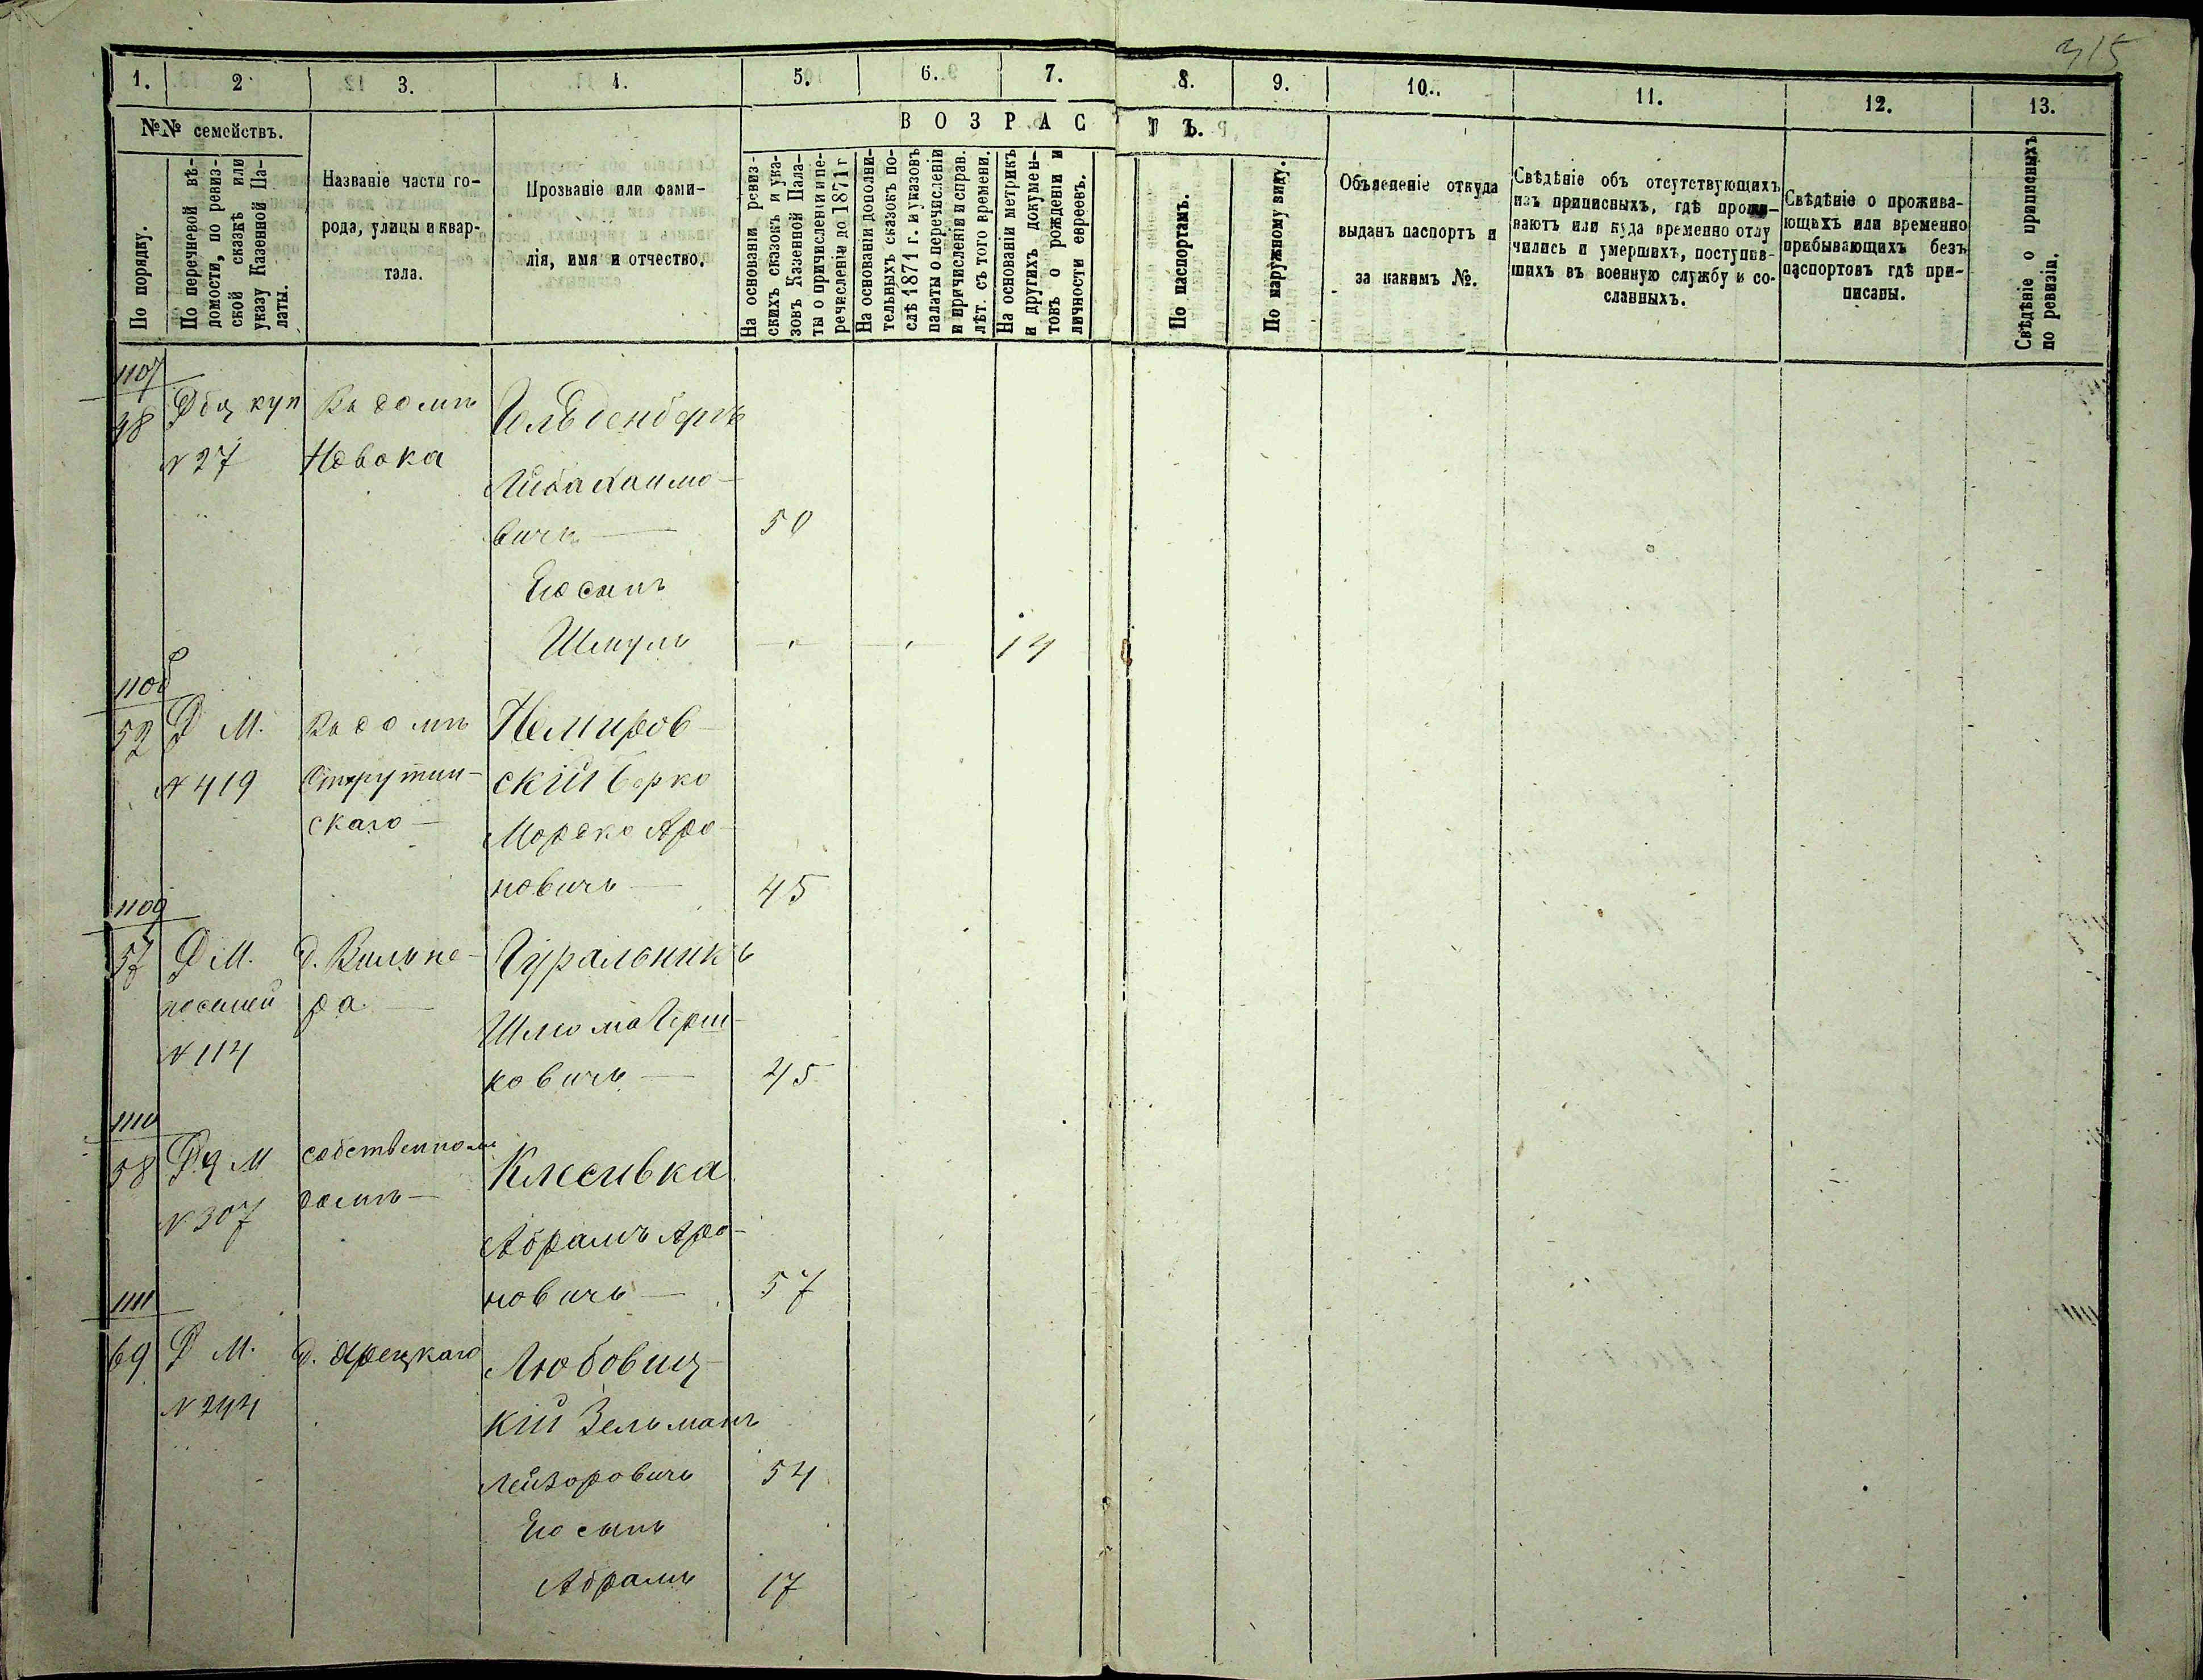 315
1. 2 3. 4. 5. 6. 7. 8. 9. 10. 11. 12. 13.
№№ семействъ.
По порядку.
По перечневой вѣ-
домости, по ревиз-
ской сказкѣ или
указу Казенной Па-
латы.
Названіе части го-
рода, улицы и квар-
тала.
Прозваніе или фами-
лія, имя и отчество.
ВОЗРАСТЪ.
На основаніи ревиз-
скихъ сказокъ и ука-
зовъ Казенной Пала-
ты о причисленіи и пе-
речисленіи до 1871 г
На основаніи дополни-
тельныхъ сказокъ по-
слѣ 1871 г. и указовъ
палаты о перечисленіи
и причисленіи и справ.
лѣт. съ того времени.
На основаніи метрикъ
и другихъ докумен-
товъ о рожденіи и
личности евреевъ.
По паспортамъ.
По наружному виду.
Объясненіе откуда
выданъ паспортъ и
за какимъ №.
Свѣдѣніе объ отсутствующихъ
изъ приписныхъ, гдѣ прожи-
ваютъ или куда временно отлу
чились и умершихъ, поступив-
шихъ въ военную службу и со-
сланныхъ.
Свѣдѣніе о прожива-
ющихъ или временно
прибывающихъ безъ
паспортовъ гдѣ при-
писаны.
Свѣдѣніе о приписныхъ
по ревизіи.
1107
48 куп Въ домѣ Гольденбергъ
N 27 Новака
Лейба Хаимо-
вичъ — 50
Его сынъ
Шмуль 14
1108
52 Д М. Въ домѣ Немиров-
N 419 Струтин- скій Берко
скаго — Мордко Аро-
новичъ — 45
1109
57 Д М. д. Вильне- Гуральникъ
ра —
N 114 Шлиома Герш-
ковичъ — 45
1110
58 М собственномъ Клесивка
N 307 домѣ —
Абрамъ Аро-
новичъ — 57
1111
69 Д М. д. Любовиц-
N 244 кій Зельманъ
Лейзоровичъ 54
Его сынъ
Абрамъ 17